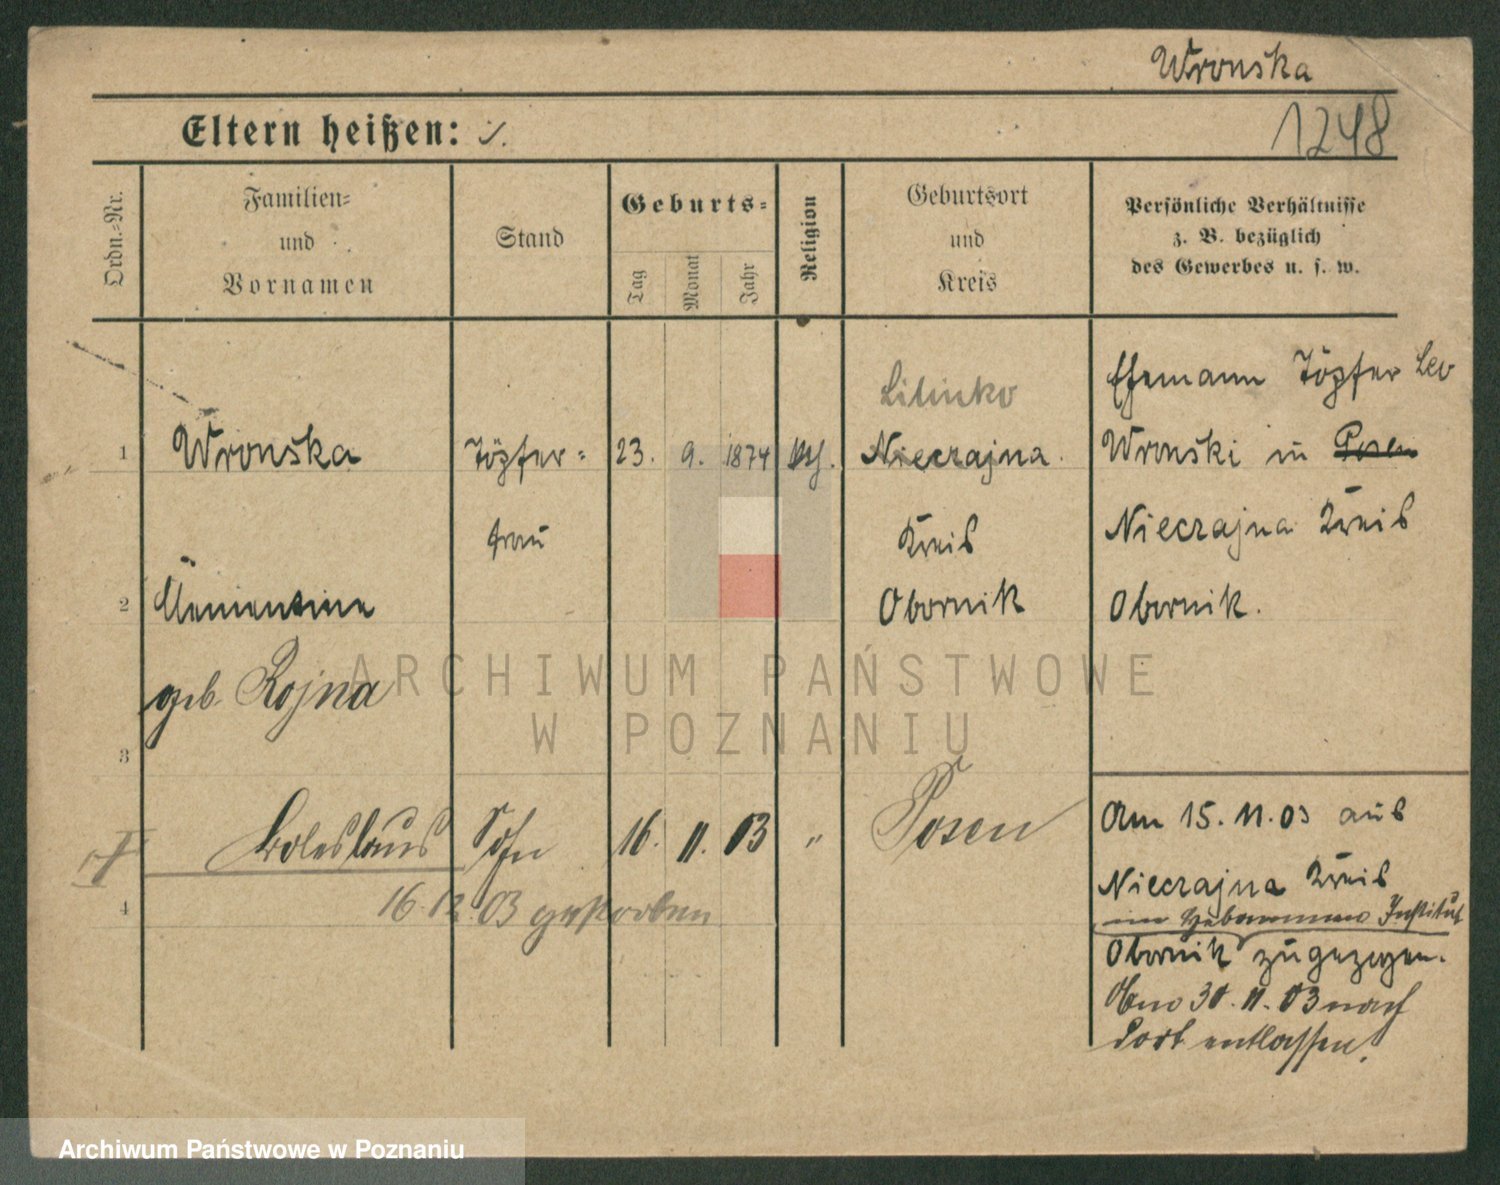 Wronska
Eltern heißen: ./.
1248
Ordn.-Nr.
Familien-
und
Vornamen
Stand
Geburts-
Tag
Monat
Jahr
Religion
Geburtsort
und
Kreis
Persönliche Verhältnisse
z. B. bezüglich
des Gewerbes u. s. w.
1
Wronska
Töpfer-
23.
9.
1874
kath.
Nieczajna
Ehemann Töpfer Leo
Wronski in Posen
frau
Kreis
Nieczajna Kreis
2
Clementine
Obornik
Obornik.
geb. Rojna
ARCHIWUM PAŃSTWOWE
W POZNANIU
3
Boleslaus
Sohn
16.
11.
03
"
Posen
Am 15.11.03 aus
Nieczajna Kreis
im Hebammen Institut
Obornik zugezogen.
Am 30.11.03 nach
dort entlassen.
4
16.12.03 gestorben
Archiwum Państwowe w Poznaniu